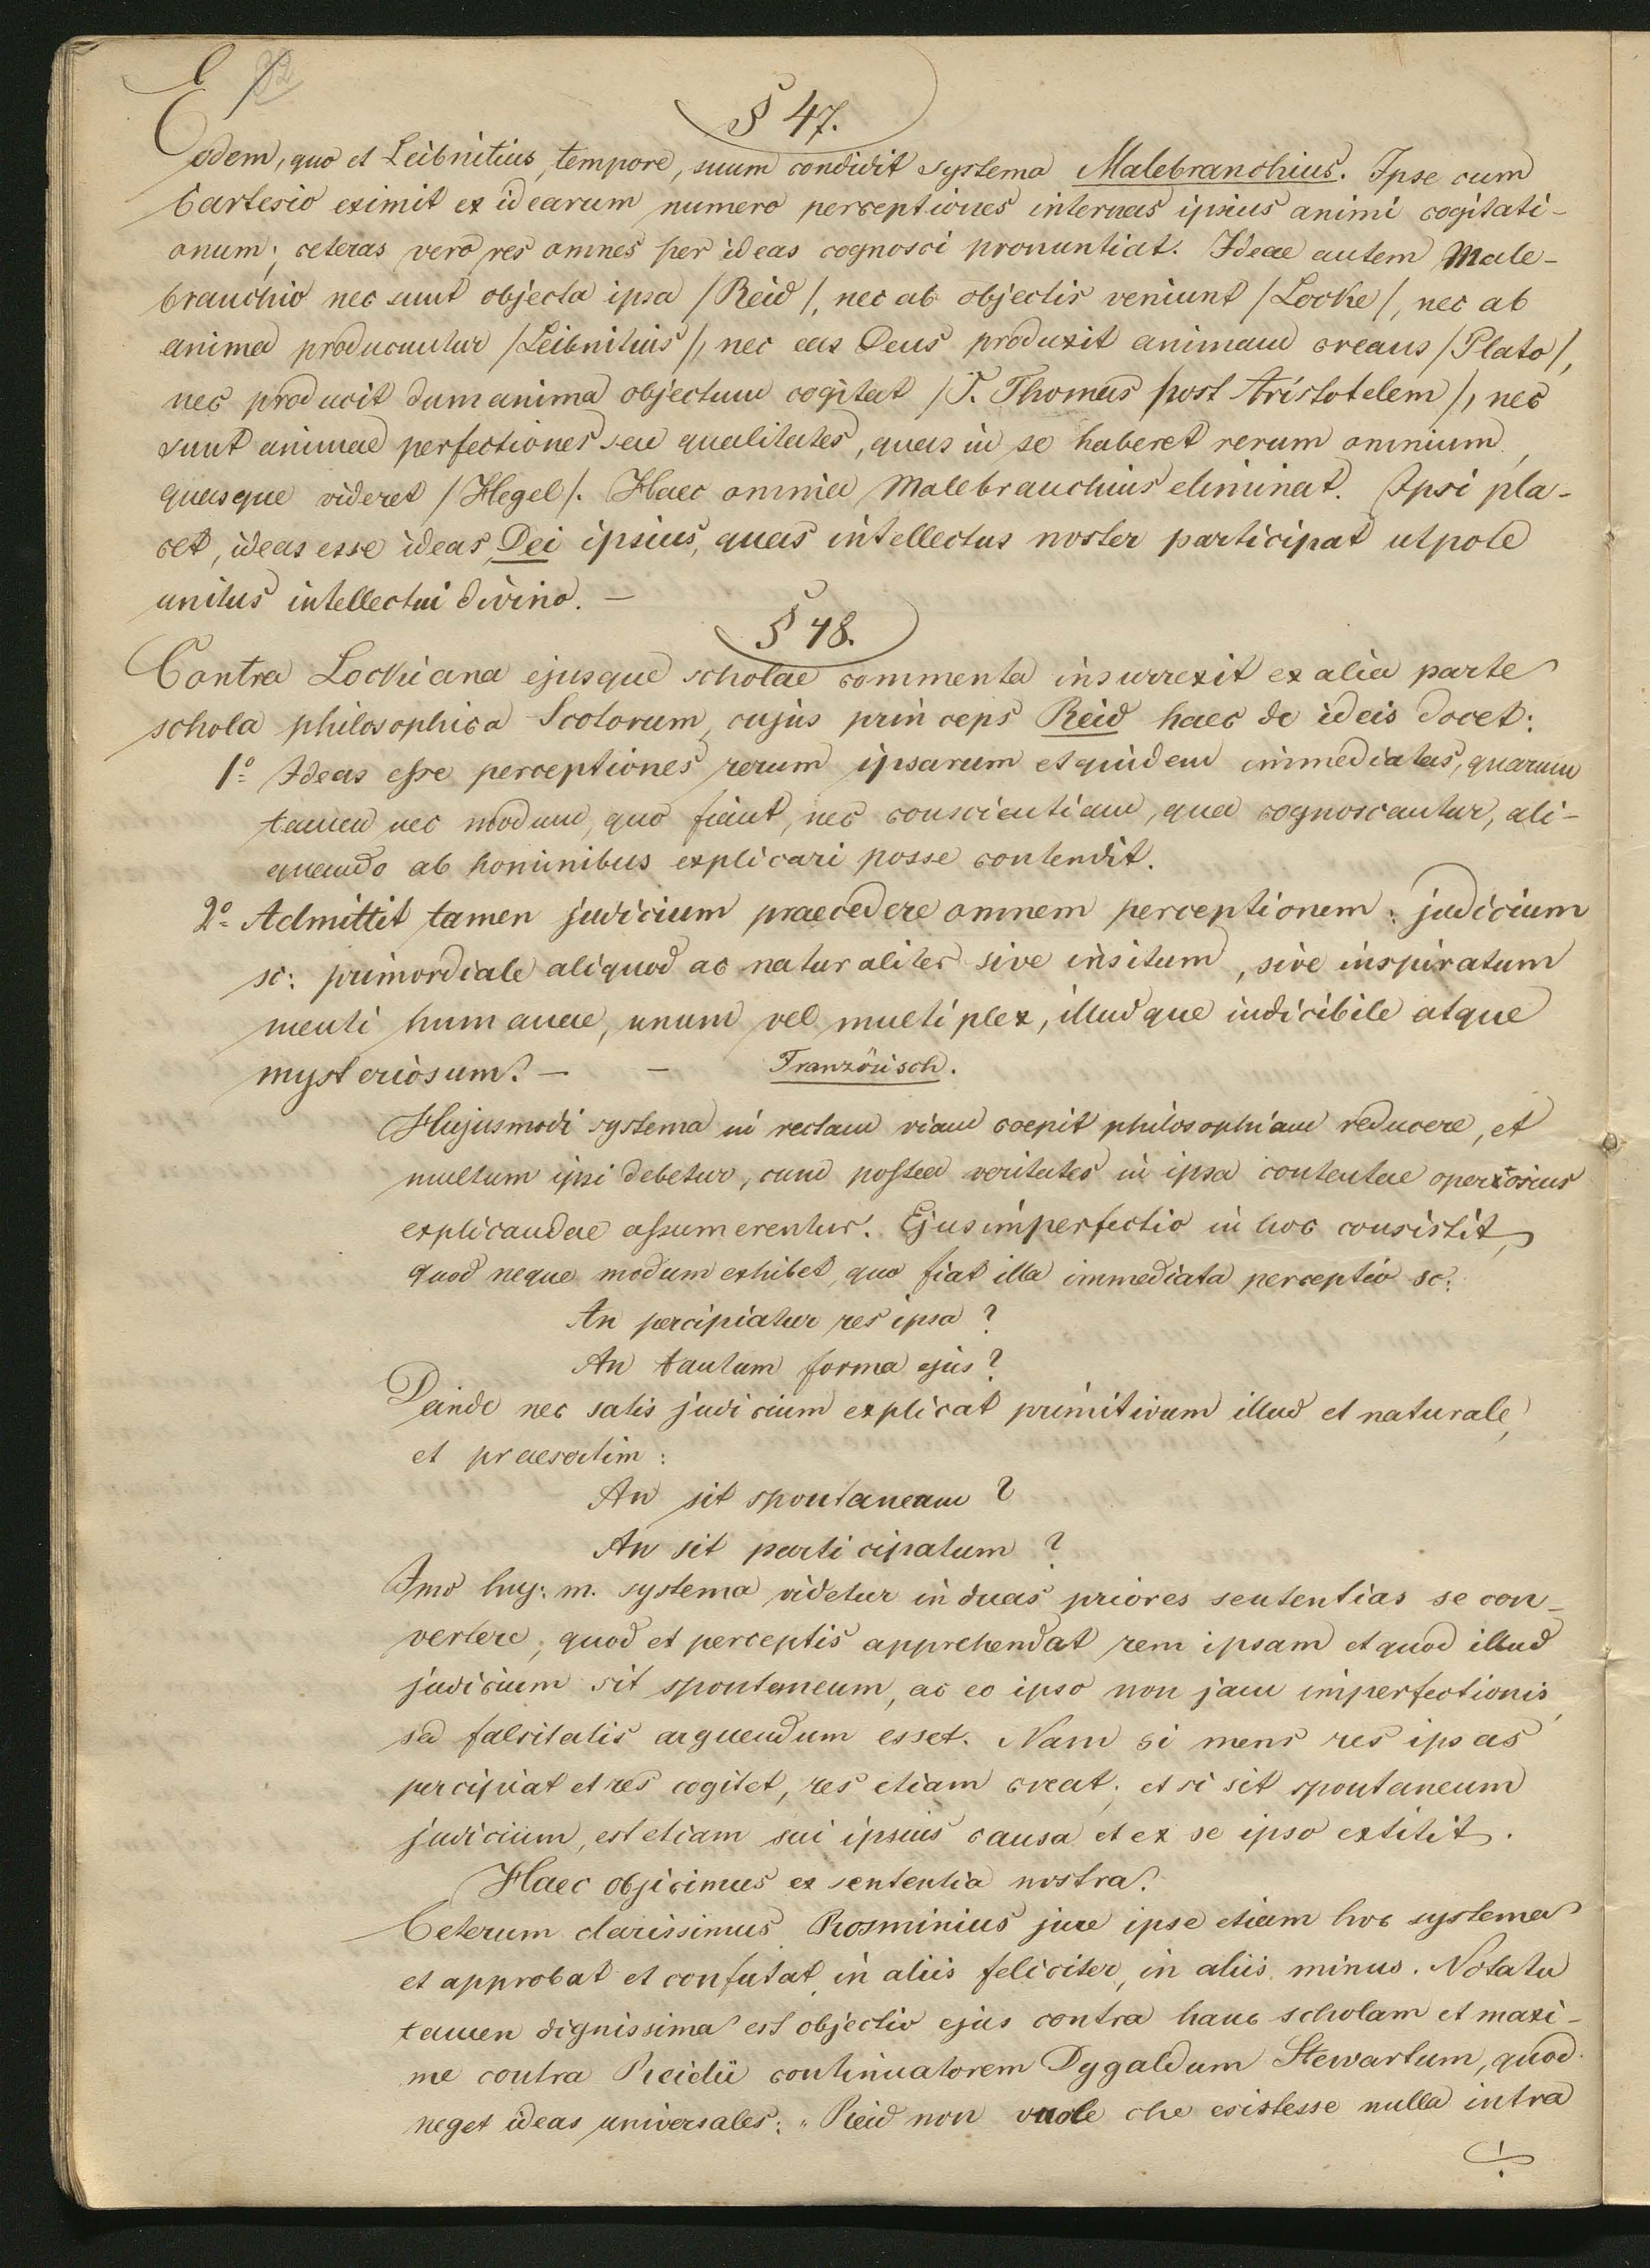 § 47.
Eodem, quo et Leibnitius, tempore, suum condidit systema Malebranchius. Ipse cum
Cartesio eximit ex idearum numero perceptiones internas ipsius animi cogitati-
onum; ceteras vero res omnes per ideas cognosci pronuntiat. Ideae autem Male-
branchio nec sunt objecta ipsa /Reid/, nec ab objectis veniunt /Locke/, nec ab
anima producuntur /Leibnitius/, nec eas Deus produxit animam creans /Plato/,
nec producit dum anima objectum cogitat /S. Thomas post Aristotelem/, nec
sunt animae perfectiones seu qualitates, quas in se haberet rerum omnium,
quasque videret /Hegel/. Haec omnia Malebranchius eliminat. Ipsi pla-
cet, ideas esse ideas Dei ipsius, quas intellectus noster participat utpote
unitus intellectui divino. —
§ 48.
Contra Lockiana ejusque scholae commenta insurrexit ex alia parte
schola philosophica Scotorum, cujus princeps Reid haec de ideis docet:
1º Ideas esse perceptiones rerum ipsarum et quidem immediatas, quarum
tamen nec modum, quo fiant, nec conscientiam, qua cognoscantur, ali-
quando ab hominibus explicari posse contendit.
2º Admittit tamen judicium praecedere omnem perceptionem: judicium
sc: primordiale aliquod ac naturaliter sive insitum, sive inspiratum
menti humanae, unum vel multiplex, illudque indicibile atque
mysteriosum. — — Französisch.
Hujusmodi systema in rectam viam coepit philosophiam reducere, et
multum ipsi debetur, cum postea veritates in ipsa contentae operosius
explicandae assumerentur. Ejus imperfectio in hoc consistit,
quod neque modum exhibet, quo fiat illa immediata perceptio sc:
An percipiatur res ipsa?
An tantum forma ejus?
Deinde nec satis judicium explicat primitivum illud et naturale,
et praesertim:
An sit spontaneum?
An sit participatum?
Imo huj: m. systema videtur in duas priores sententias se con-
vertere, quod et perceptis apprehendat rem ipsam et quod illud
judicium sit spontaneum, ac eo ipso non jam imperfectionis,
sed falsitatis arguendum esset. Nam si mens res ipsas
percipiat et res cogitet, res etiam creat; et si sit spontaneum
judicium, est etiam sui ipsius causa et ex se ipso extitit.
Haec objicimus ex sententia nostra.
Ceterum clarissimus Rosminius jure ipse etiam hoc systema
et approbat et confutat, in aliis feliciter, in aliis minus. Notatu
tamen dignissima est objectio ejus contra hanc scholam et maxi-
me contra Reidii continuatorem Dygaldum Stewartum, quod
neget ideas universales: „Reid non vuole che esistesse nulla intra